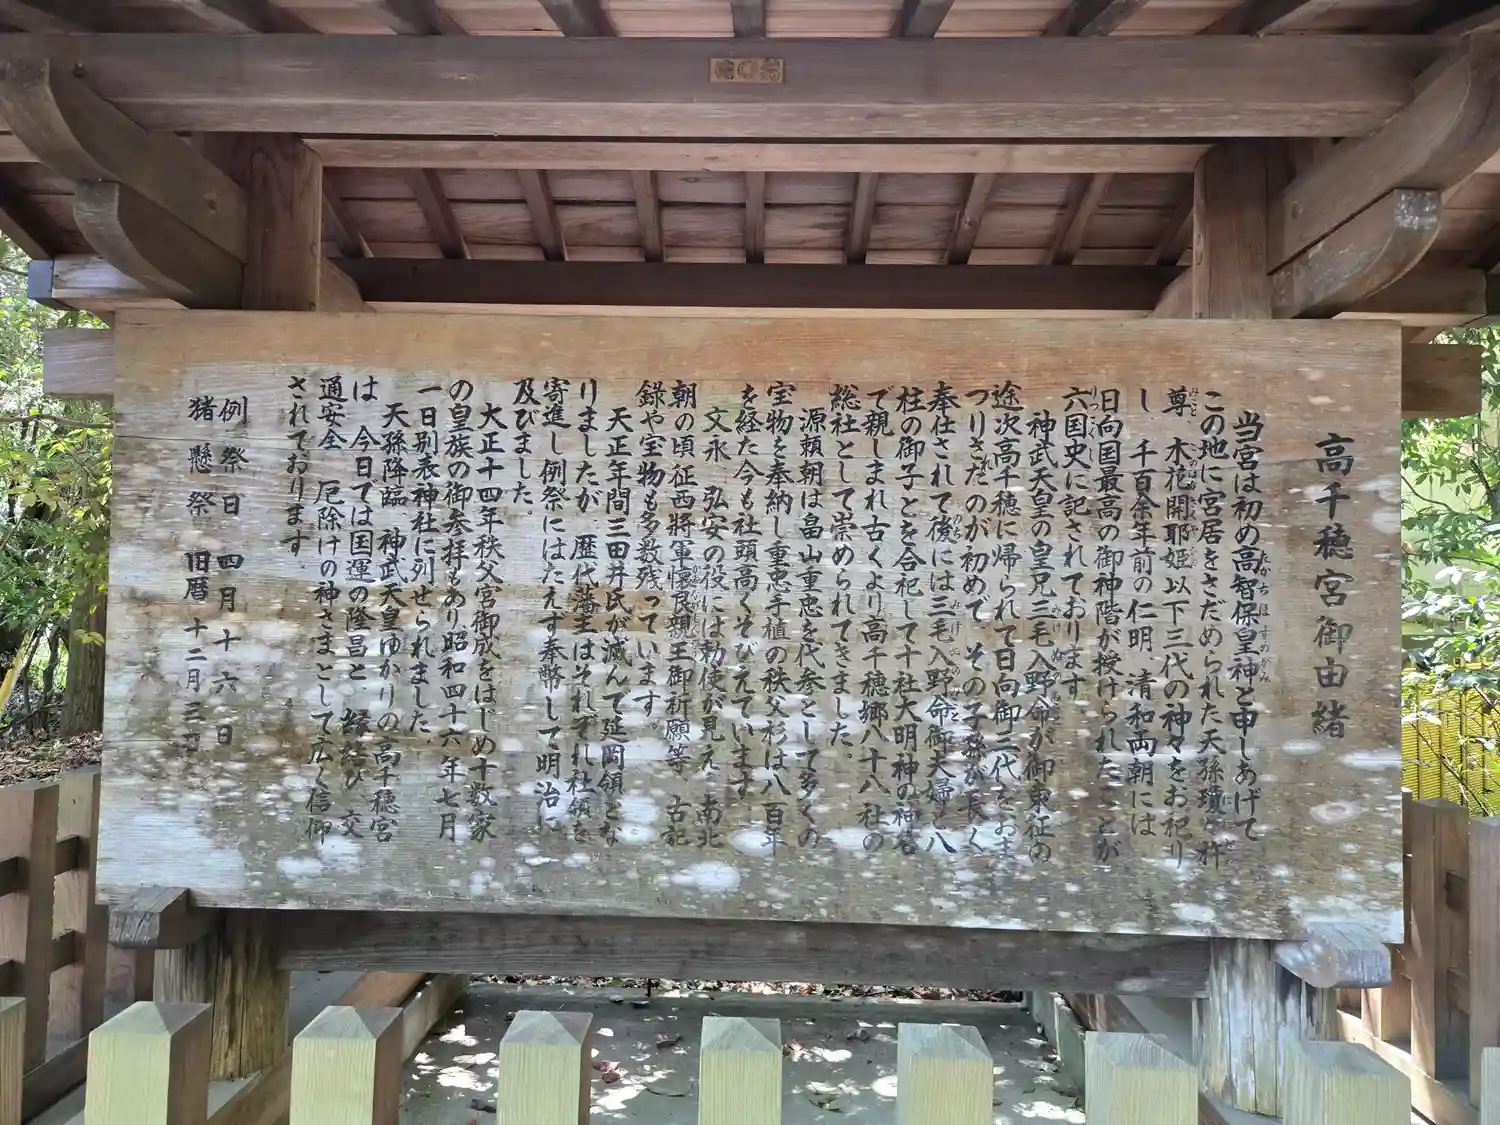 高千穂宮御由緒
当宮は初め高智保皇神と申しあげて
たかちほすめがみ
この地に宮居をさだめられた天孫瓊々杵
にに
尊 木花開耶姫以下三代の神々をお祀り
みこと
し 千百余年前の仁明、清和両朝には
日向国最高の御神階が授けられたことが
六国史に記されております
りっこくし
神武天皇の皇兄三毛入野命が御東征の
途次高千穂に帰られて日向御三代をおま
つりさだのが初めで その子孫が長く
奉仕されて後には三毛入野命御夫婦と八
柱の御子とを合祀して十社大明神の神名
で親しまれ古くより高千穂郷八十八社の
総社として崇められてきました。
源頼朝は畠山重忠を代参として多くの
宝物を奉納し重忠手植の秩父杉は八百年
を経た今も社頭高くそびえています
文永 弘安の役には勅使が見え 南北
朝の頃征西将軍懐良親王御祈願等 古記
録や宝物も多数残っています。
天正年間三田井氏が滅んで延岡領とな
りましたが、歴代藩主はそれぞれ社領を
寄進し例祭にはたえず奉幣して明治に
及びました。
大正十四年秩父宮御成をはじめ十数家
の皇族の御参拝もあり昭和四十六年七月
一日別表神社に列せられました
天孫降臨 神武天皇ゆかりの高千穂宮
は 今日では国運の隆昌と、縁結び 交
通安全 厄除けの神さまとして広く信仰
されております。
例祭日 四月十六日
猪懸祭 旧暦十二月三日